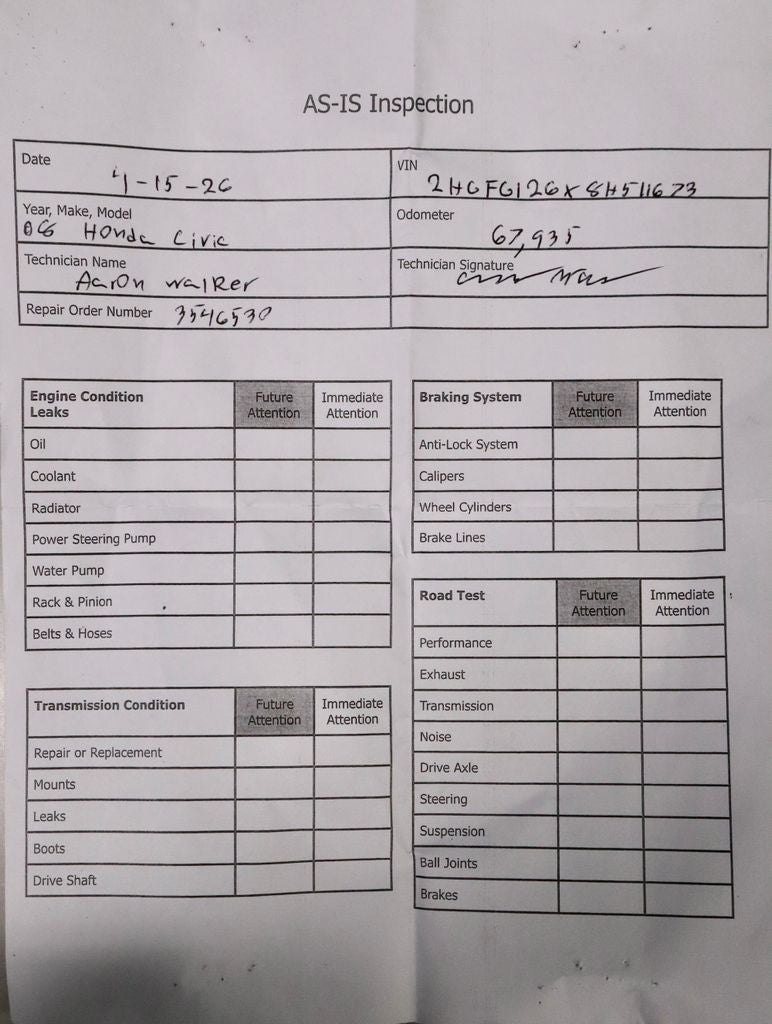 AS-IS Inspection
Date 4-15-26
VIN 2HGFG126X8H511673
Year, Make, Model
08 Honda Civic
Odometer 67,935
Technician Name
Aaron Walker
Technician Signature
Repair Order Number 3546530
Engine Condition Leaks Future Attention Immediate Attention
Oil
Coolant
Radiator
Power Steering Pump
Water Pump
Rack & Pinion
Belts & Hoses
Transmission Condition Future Attention Immediate Attention
Repair or Replacement
Mounts
Leaks
Boots
Drive Shaft
Braking System Future Attention Immediate Attention
Anti-Lock System
Calipers
Wheel Cylinders
Brake Lines
Road Test Future Attention Immediate Attention
Performance
Exhaust
Transmission
Noise
Drive Axle
Steering
Suspension
Ball Joints
Brakes